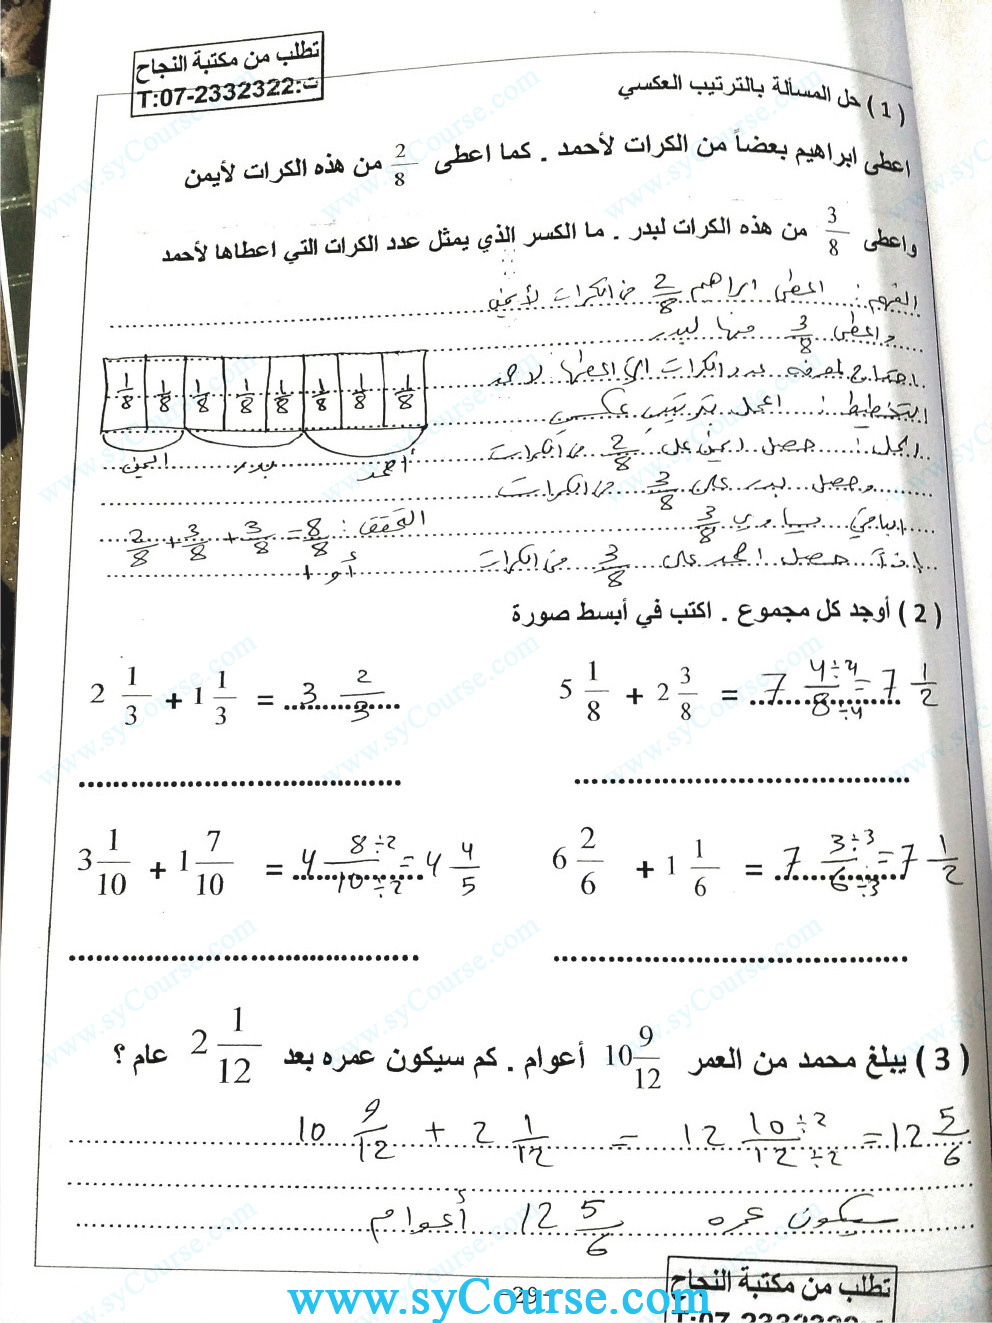 تطلب من مكتبة النجاح
ت:T:07-2332322
( 1 ) حل المسألة بالترتيب العكسي
اعطى ابراهيم بعضاً من الكرات لأحمد . كما اعطى 2/8 من هذه الكرات لأيمن
واعطى 3/8 من هذه الكرات لبدر . ما الكسر الذي يمثل عدد الكرات التي اعطاها لأحمد
الفهم : اعطى ابراهيم 2/8 من الكرات لأيمن
واعطى 3/8 منها لبدر
احتاج لمعرفة عدد الكرات التي اعطاها لاحمد
التخطيط : اعمل بترتيب عكسي
الحل : حصل ايمن على 2/8 من الكرات
وحصل بدر على 3/8 من الكرات
الباقي يساوي 3/8
اذاً حصل احمد على 3/8 من الكرات
1/8 1/8 1/8 1/8 1/8 1/8 1/8 1/8
أحمد بدر ايمن
التحقق : 2/8 + 3/8 + 3/8 = 8/8
أو 1
( 2 ) أوجد كل مجموع . اكتب في أبسط صورة
5 1/8 + 2 3/8 = 7 4÷4/8÷4 = 7 1/2
2 1/3 + 1 1/3 = 3 2/3
6 2/6 + 1 1/6 = 7 3÷3/6÷3 = 7 1/2
3 1/10 + 1 7/10 = 4 8÷2/10÷2 = 4 4/5
( 3 ) يبلغ محمد من العمر 10 9/12 أعوام . كم سيكون عمره بعد 2 1/12 عام ؟
10 9/12 + 2 1/12 = 12 10÷2/12÷2 = 12 5/6
سيكون عمره 12 5/6 أعوام
تطلب من مكتبة النجاح
-29-
www.syCourse.com